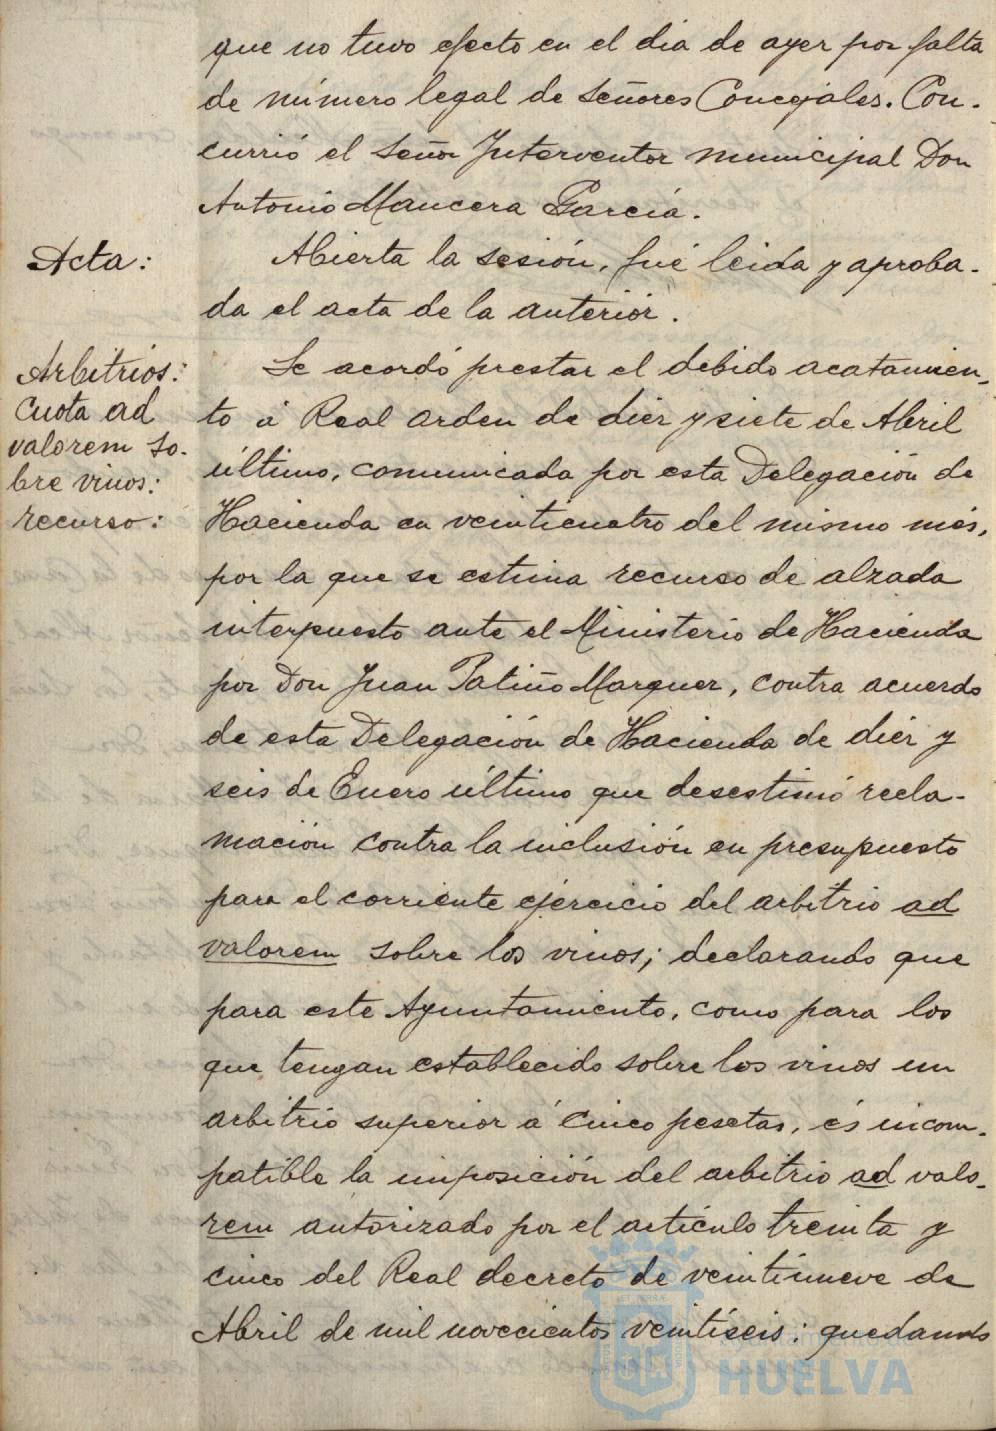 que no tuvo efecto en el dia de ayer por falta
de número legal de Señores Concejales. Con-
currió el Señor Interventor municipal Don
Antonio Mancera García.
Acta:
Abierta la sesión, fué leida y aproba-
da el acta de la anterior.
Arbitrios:
Cuota ad
valorem so-
bre vinos:
recurso:
Se acordó prestar el debido acatamien-
to á Real orden de diez y siete de Abril
último, comunicada por esta Delegación de
Hacienda en veinticuatro del mismo mes,
por la que se estima recurso de alzada
interpuesto ante el Ministerio de Hacienda
por Don Juan Patiño Marquez, contra acuerdo
de esta Delegación de Hacienda de diez y
seis de Enero último que desestimó recla-
mación contra la inclusión en presupuesto
para el corriente ejercicio del arbitrio ad
valorem sobre los vinos; declarando que
para este Ayuntamiento, como para los
que tengan establecido sobre los vinos un
arbitrio superior á cinco pesetas, és incom-
patible la imposición del arbitrio ad valo-
rem autorizado por el artículo treinta y
cinco del Real decreto de veintinueve de
Abril de mil novecientos veintiseis: quedando
Ayuntamiento de
HUELVA